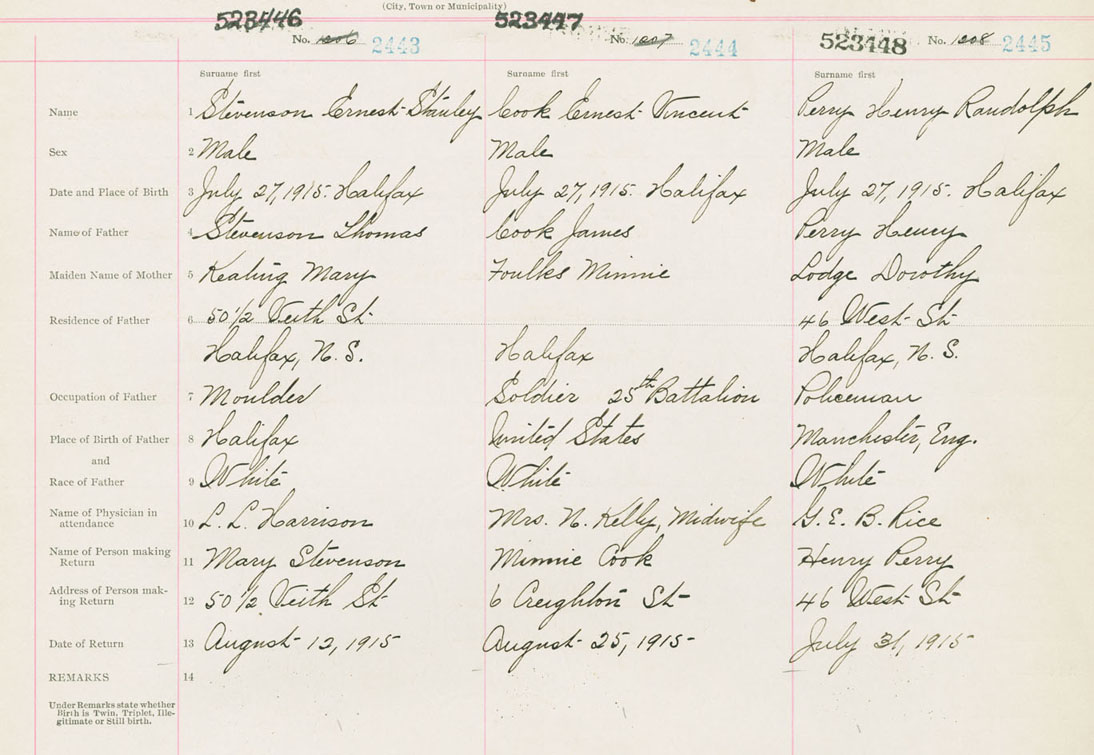 (City, Town or Municipality)
523446 523447
523448
No. 1206 2443 No. 1207 2444 No. 1208 2445
Surname first Surname first Surname first
Name 1 Stevenson Ernest Stanley Cook Ernest Vincent Perry Henry Randolph
Sex 2 Male Male Male
Date and Place of Birth 3 July 27, 1915. Halifax July 27, 1915. Halifax July 27, 1915. Halifax
Name of Father 4 Stevenson Thomas Cook James Perry Henry
Maiden Name of Mother 5 Keating Mary Foulks Minnie Lodge Dorothy
Residence of Father 6 50 1/2 Veith St 46 West St
Halifax, N. S. Halifax Halifax, N. S.
Occupation of Father 7 Moulder Soldier 25th Battalion Policeman
Place of Birth of Father 8 Halifax United States Manchester, Eng.
and
Race of Father 9 White White White
Name of Physician in
attendance 10 L. L. Harrison Mrs. N. Kelly, Midwife G. E. B. Rice
Name of Person making
Return 11 Mary Stevenson Minnie Cook Henry Perry
Address of Person mak-
ing Return 12 50 1/2 Veith St 6 Creighton St 46 West St
Date of Return 13 August 12, 1915 August 25, 1915 July 31, 1915
REMARKS 14
Under Remarks state whether
Birth is Twin, Triplet, Ille-
gitimate or Still birth.